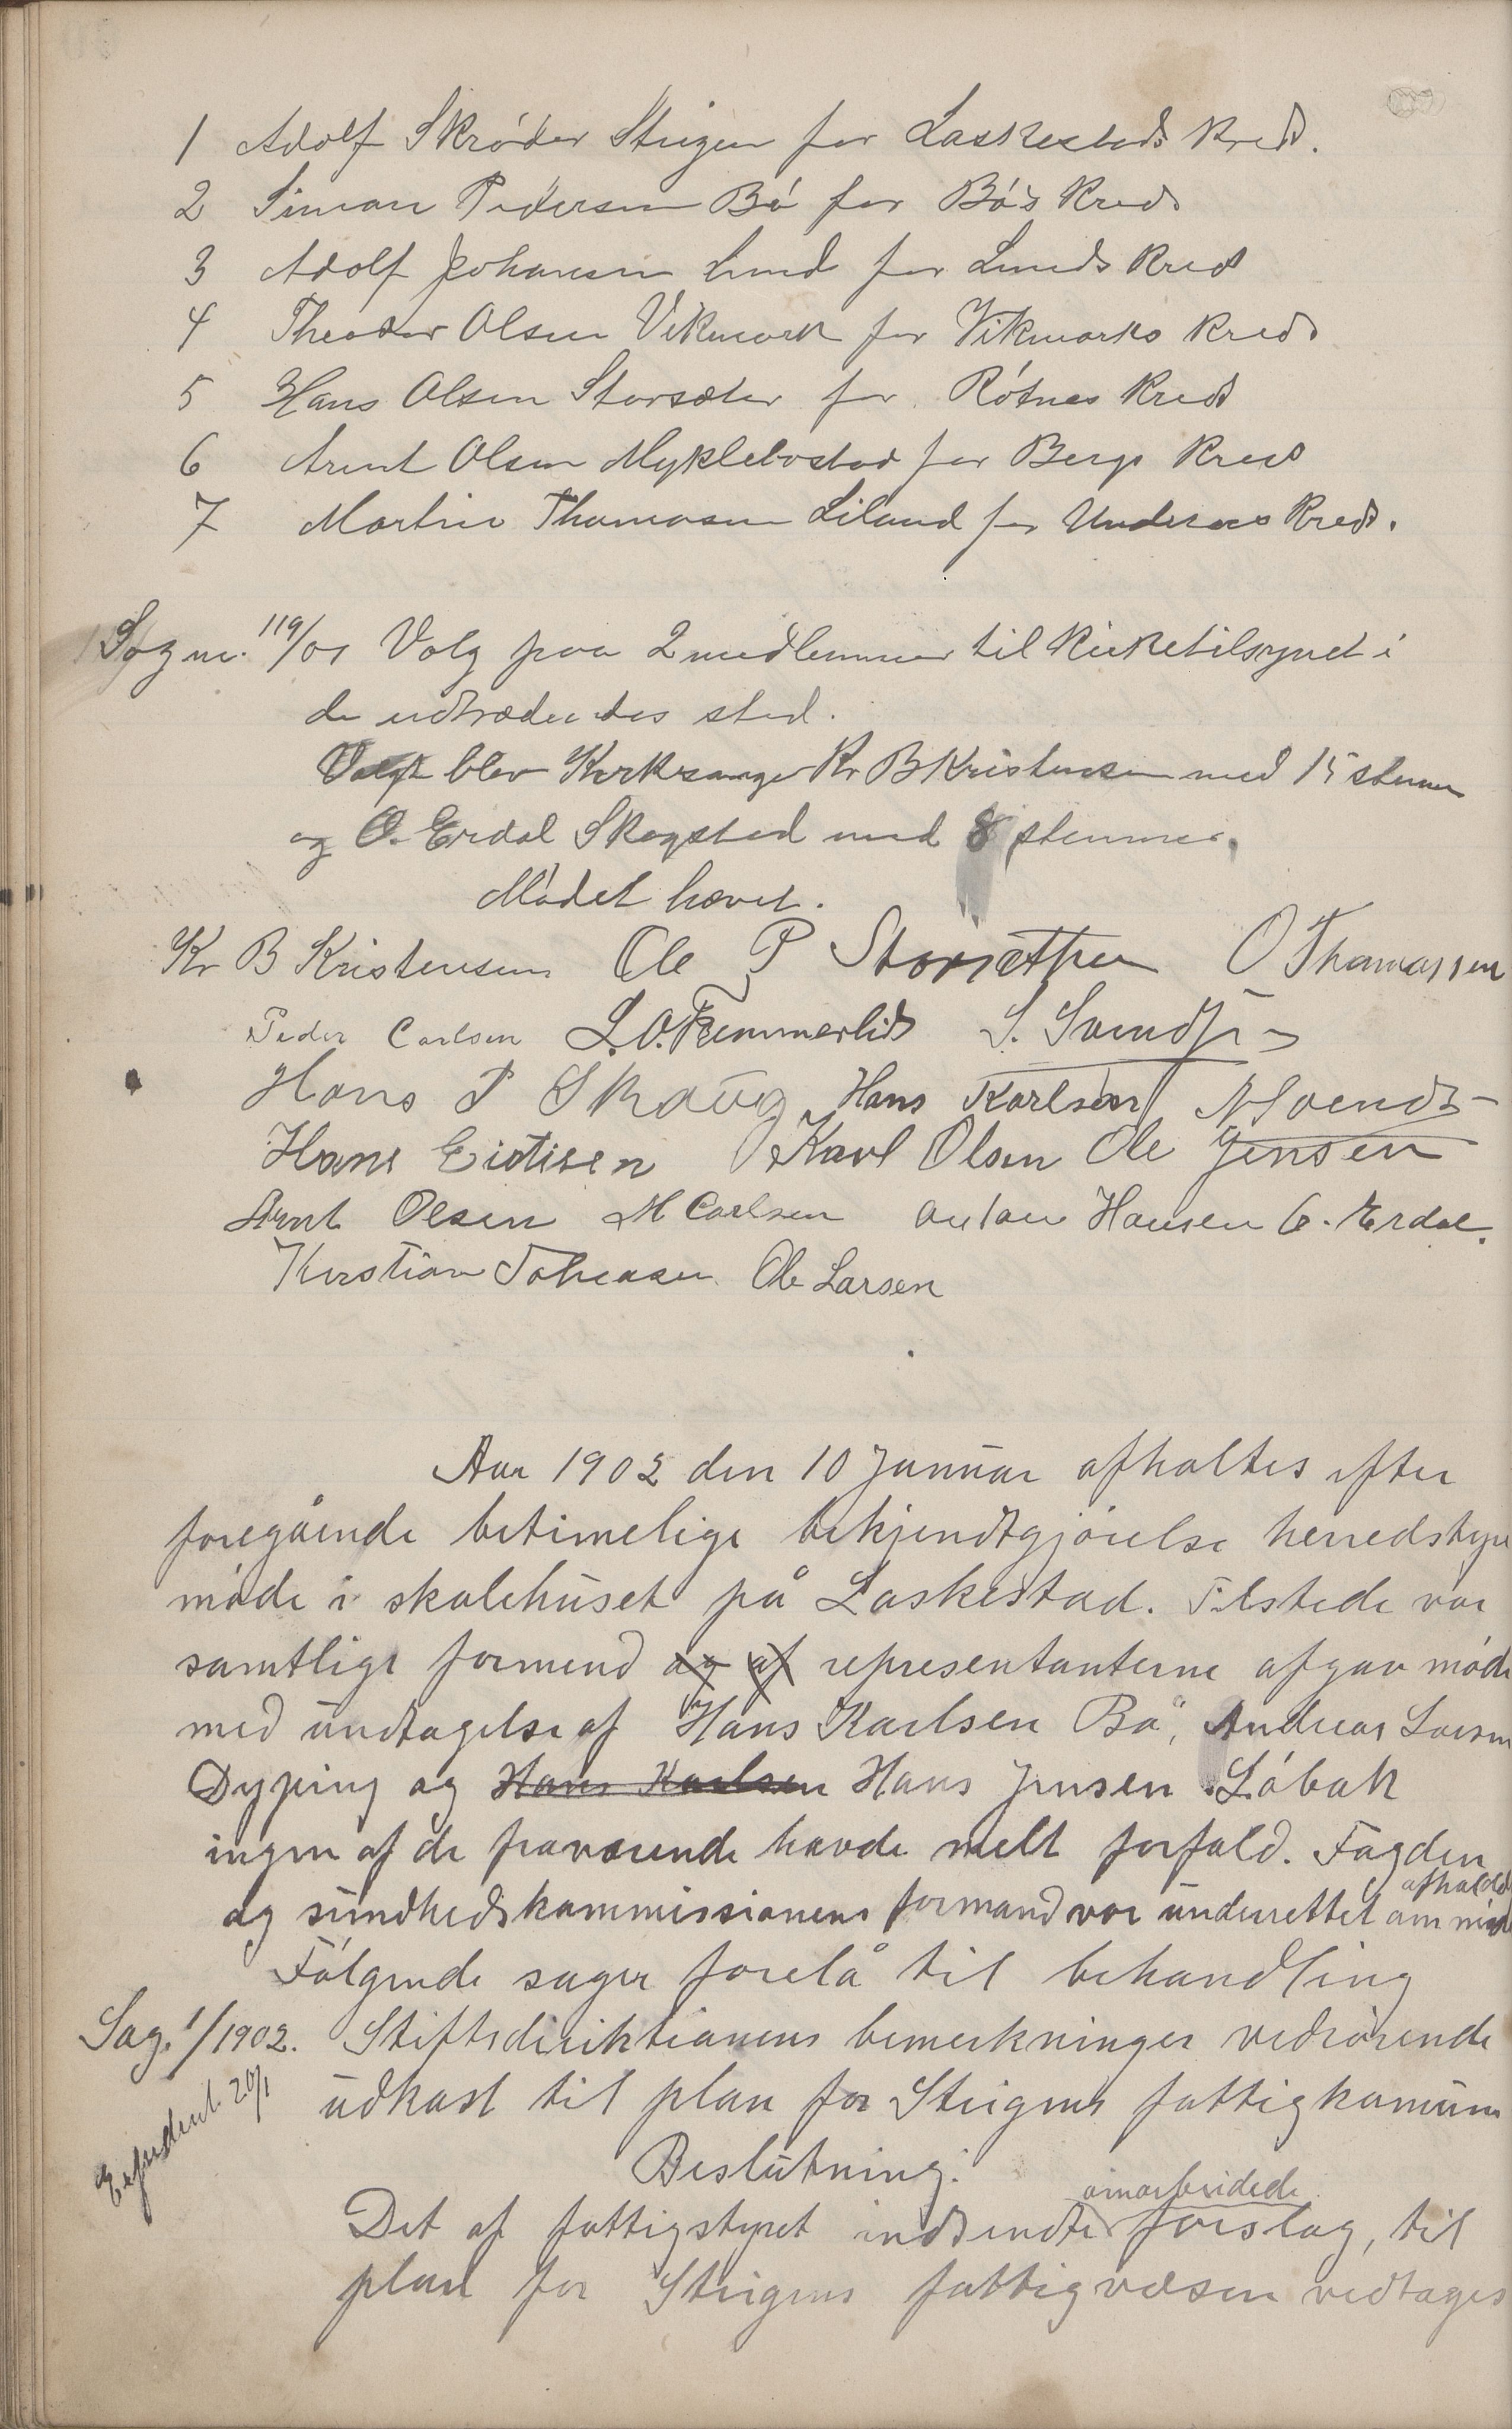 1 Adolf Skrøder Steigen for Laskestads kreds.
2 Simon Pedersen Bø for Bø's kreds
3 Adolf Johansen Lund for Lunds kreds
4 Theodor Olsen Vikmark for Vikmarks kreds
5 Hans Olsen Storsæter for Røtnes kreds
6 Arent Olsen Myklebostad for Bergs kreds
7 Martin Thomasen Liland for kreds.
Sag nr. 119/01 Valg paa 2 medlemmer til kirketilsynet i
de udtrædendes sted.
Valgt blev Kirksanger Kr B Kristensen med 15 stemmer
og O. Erdal Skogstad med 8 stemmer.
Mødet hævet.
Kr B Kristensen Ole P Storsæther O Thomassen
Peder Carlsen L.O. Brennerlid S. Svends
Hans P Skaug Hans Karlsen
Hans Karl Olsen Ole Jensen
Arnt Olsen M Carlsen Antan Hansen O. Erdal.
Kirstian Johansen Ole Larsen
Aar 1902 den 10 Januar afholtes efter
foregående betimelige bekjendtgjørelse herredstyre
møde i skolehuset på Laskestad. Tilstede var
samtlige formend og af representanterne afgav møde
med undtagelse af Hans Karlsen Bø, Andreas Larsen
Dyping og Hans Karlsen Hans Jensen Løbak
ingen af de fraværende havde melt forfald. Fogden
afholdelse
og sundhedskommissionens formand var underrettet om møde
Følgende sager forelå til behandling
Sag. 1/1902. Stiftsdirektionens bemerkninger vedrørende
udkast til plan for Steigens fattigkomune
Expedert 20/1
Beslutning:
omarbeidede
Det af fattigstyret indsendte forslag, til
plan for Steigens fattigvæsen vedtages